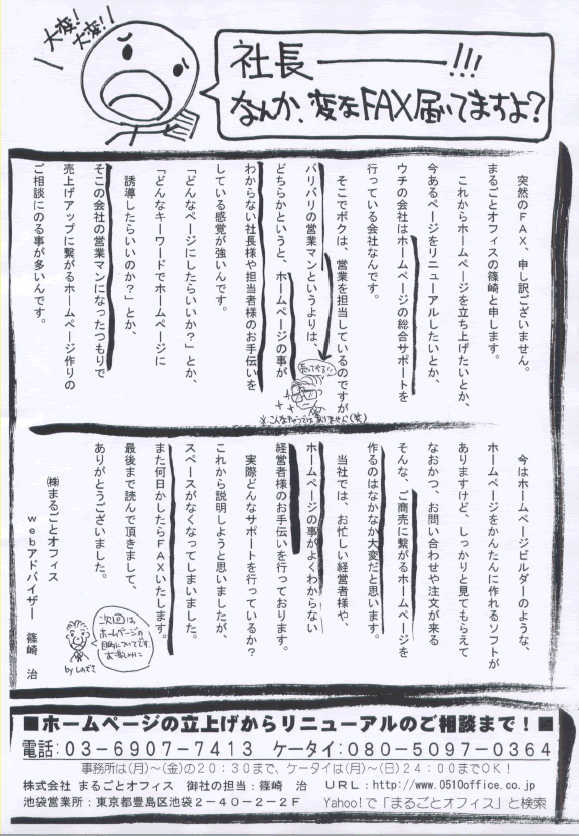 大変!
大変!!
社長―――!!!
なんか、変なFAX届いてますよ?
突然のFAX、申し訳ございません。
まるごとオフィスの篠崎と申します。
これからホームページを立ち上げたいとか、
今あるページをリニューアルしたいとか、
ウチの会社はホームページの総合サポートを
行っている会社なんです。
そこでボクは、営業を担当しているのですが
バリバリの営業マンというよりは、
どちらかというと、ホームページの事が
わからない社長様や担当者様のお手伝いを
している感覚が強いんです。
「どんなページにしたらいいか?」とか、
「どんなキーワードでホームページに
誘導したらいいのか?」とか、
そこの会社の営業マンになったつもりで
売上げアップに繋がるホームページ作りの
ご相談にのる事が多いんです。
売ってやる!!
※こんなキャラではありません(笑)
今はホームページビルダーのような、
ホームページをかんたんに作れるソフトが
ありますけど、しっかりと見てもらえて
なおかつ、お問い合わせや注文が来る
そんな、ご商売に繋がるホームページを
作るのはなかなか大変だと思います。
当社では、お忙しい経営者様や、
ホームページの事がよくわからない
経営者様のお手伝いを行っております。
実際どんなサポートを行っているか?
これから説明しようと思いましたが、
スペースがなくなってしまいました。
また何日かしたらFAXいたします。
最後まで読んで頂きまして、
ありがとうございました。
㈱まるごとオフィス
webアドバイザー 篠崎 治
次回は
ホームページの
目的についてです。
お楽しみに
by しのざき
■ホームページの立上げからリニューアルのご相談まで!■
電話:03-6907-7413 ケータイ:080-5097-0364
事務所は(月)~(金)の20:30まで、ケータイは(月)~(日)24:00までOK!
株式会社 まるごとオフィス 御社の担当:篠崎 治 URL:http://www.0510office.co.jp
池袋営業所:東京都豊島区池袋2-40-2-2F Yahoo!で「まるごとオフィス」と検索